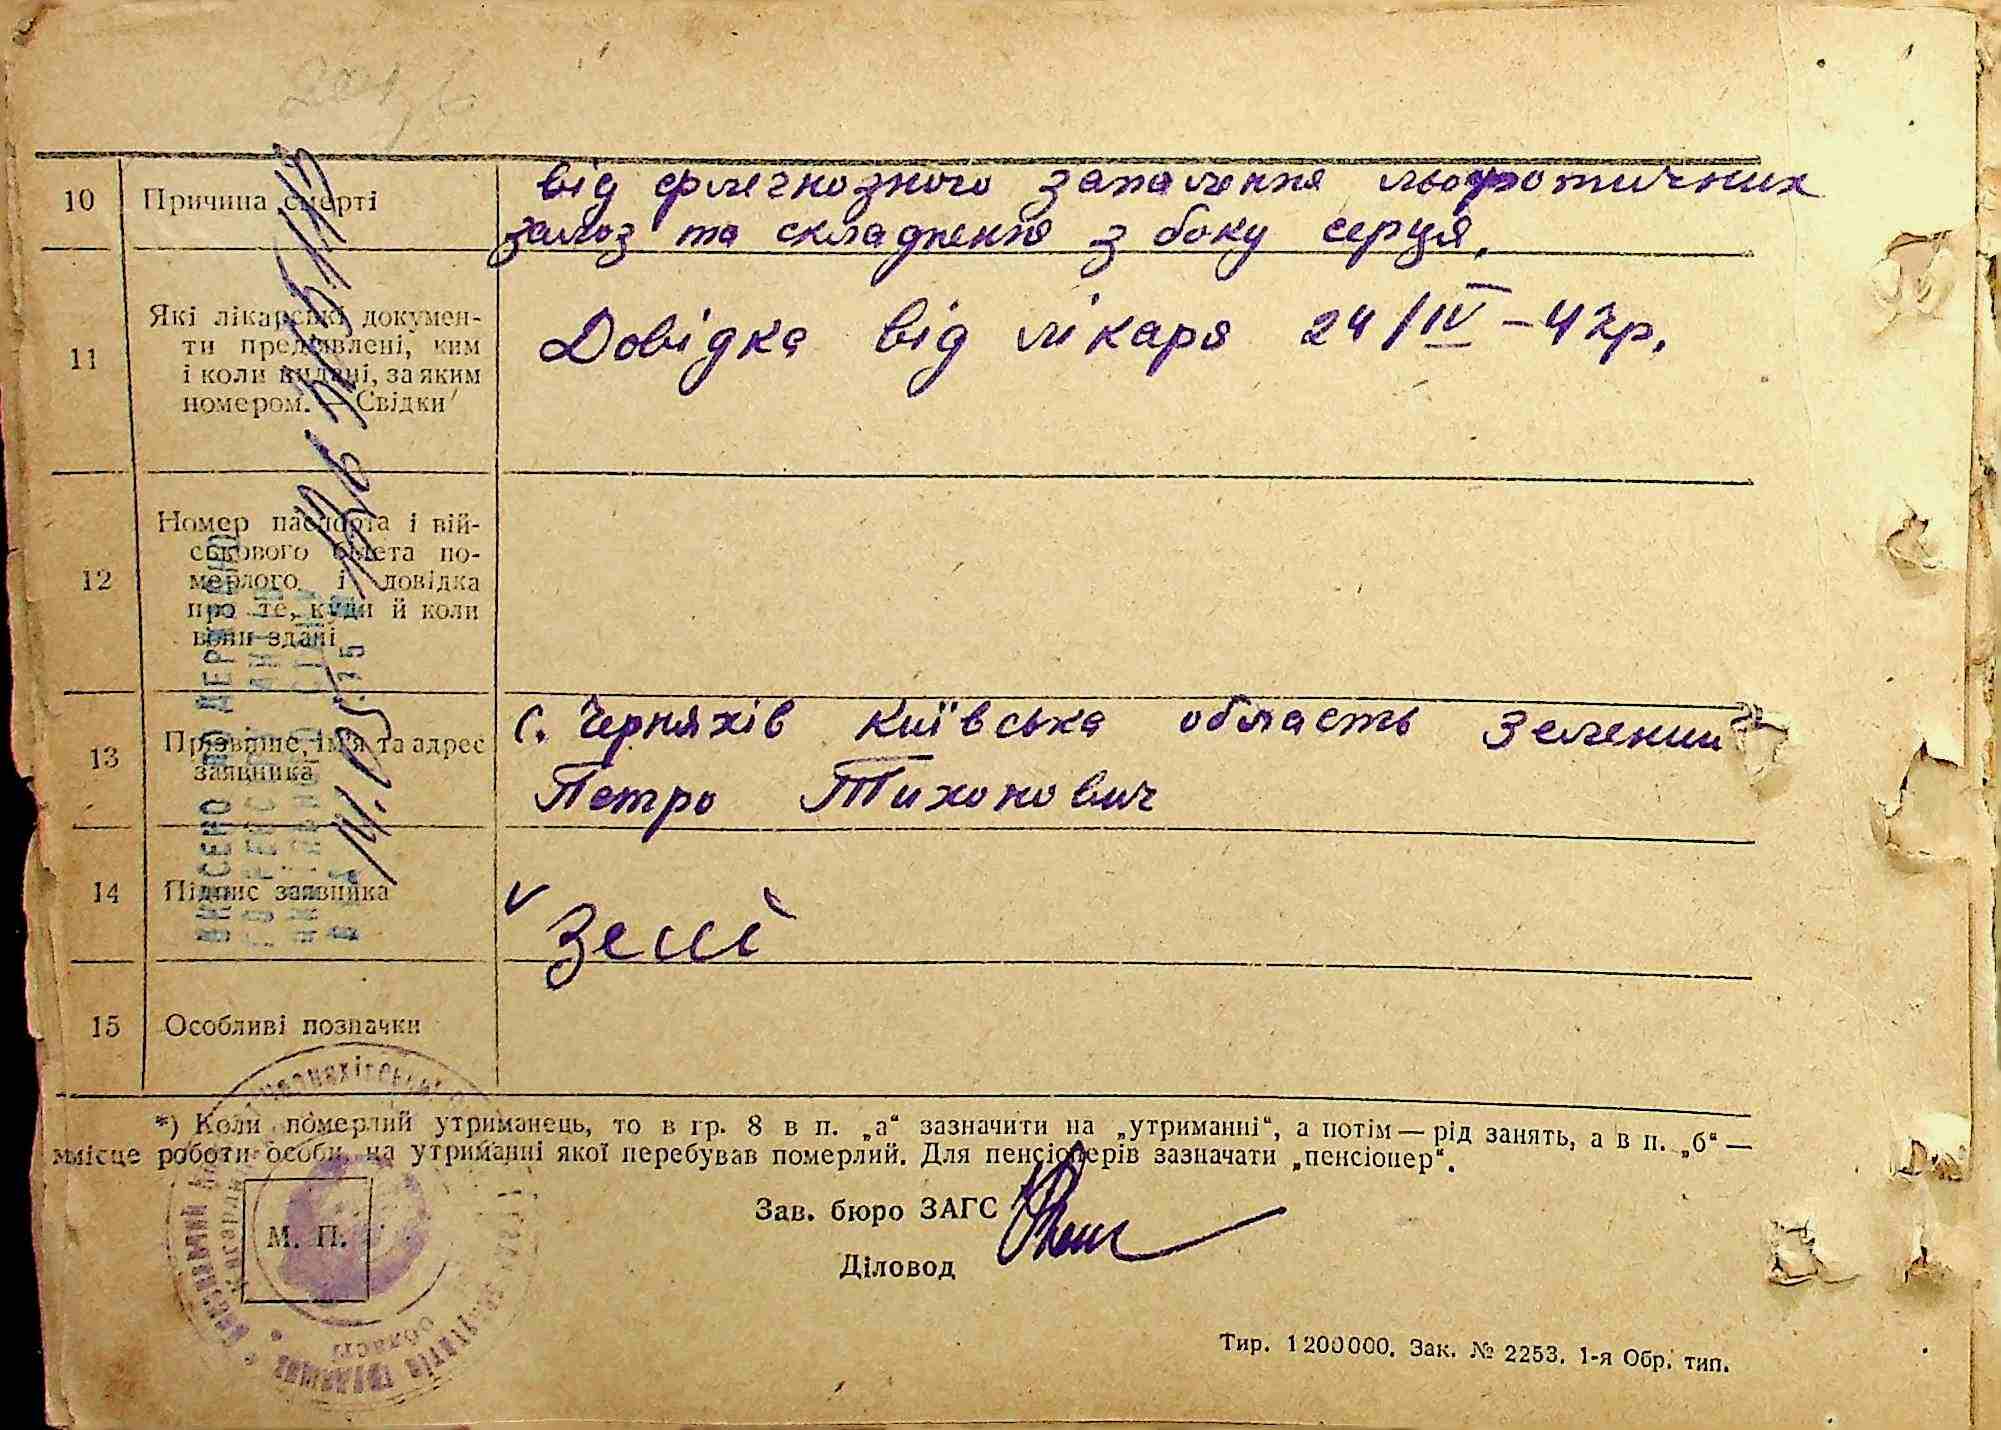 10 Причина смерті
від флегнозного запалення льофотичних
залоз та складнення з боку серця.
11 Які лікарські докумен-
ти пред'явлені, ким
і коли видані, за яким
номером. — Свідки
Довідка від лікаря 24/IV – 41р.
12 Номер паспорта і вій-
ськового білета по-
мерлого і довідка
про те, куди й коли
вони здані
13 Прізвище, ім'я та адрес
заявника
с. Черняхів Київська область Зелений
Петро Тихонович
14 Підпис заявника
V Зелі
15 Особливі позначки
*) Коли померлий утриманець, то в гр. 8 в п. „а“ зазначити на „утриманні“, а потім — рід занять, а в п. „б“ —
місце роботи особи, на утриманні якої перебував померлий. Для пенсіонерів зазначати „пенсіонер“.
М. П.
Зав. бюро ЗАГС
Діловод
Тир. 1200000. Зак. № 2253. 1-я Обр. тип.